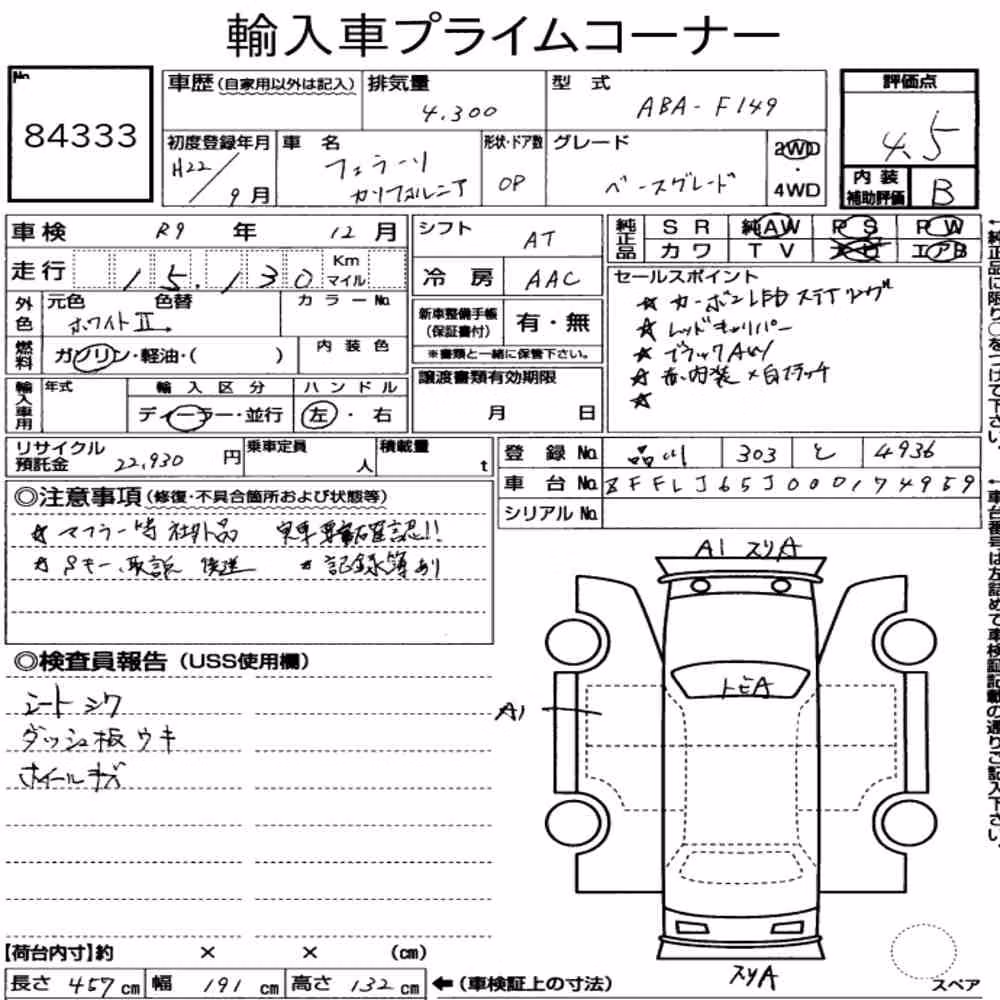 輸入車プライムコーナー
No.
84333
車歴(自家用以外は記入) 排気量 4,300 型式 ABA-F149
評価点 4.5
初度登録年月 H22/9月 車名 フェラーリ カリフォルニア 形状・ドア数 OP グレード ベースグレード 2WD・4WD
内装補助評価 B
車検 R9年 12月 シフト AT 純正品 SR 純AW PS PW
カワ TV エアB
走行 15,130 Km マイル 冷房 AAC
セールスポイント
☆ カーボンLEDステアリング
☆ レッドキャリパー
☆ ブラックAW
☆ 赤内装×白ステッチ
☆
外色 元色 ホワイトⅡ 色替 カラーNo.
新車整備手帳(保証書付) 有・無
※書類と一緒に保管下さい。
燃料 ガソリン・軽油・( ) 内装色
譲渡書類有効期限 月 日
輸入車用 年式 輸入区分 ディーラー・並行 ハンドル 左・右
リサイクル預託金 22,930円 乗車定員 人 積載量 t
登録No. 品川 303 と 4936
車台No. ZFFLJ65J000174959
シリアルNo.
◎注意事項(修復・不具合箇所および状態等)
☆ マフラー等社外品 実車要確認!!
☆ Sキー、取説 後送 ☆ 記録簿あり
◎検査員報告(USS使用欄)
シートシワ
ダッシュ板ウキ
ホイールキズ
A1 スリA
トビA
A1
スリA
スペア
【荷台内寸】約 × × (cm)
長さ 457cm 幅 191cm 高さ 132cm ←(車検証上の寸法)
←純正品に限り○をつけて下さい。
←車台番号は左詰めで車検証記載の通りご記入下さい。